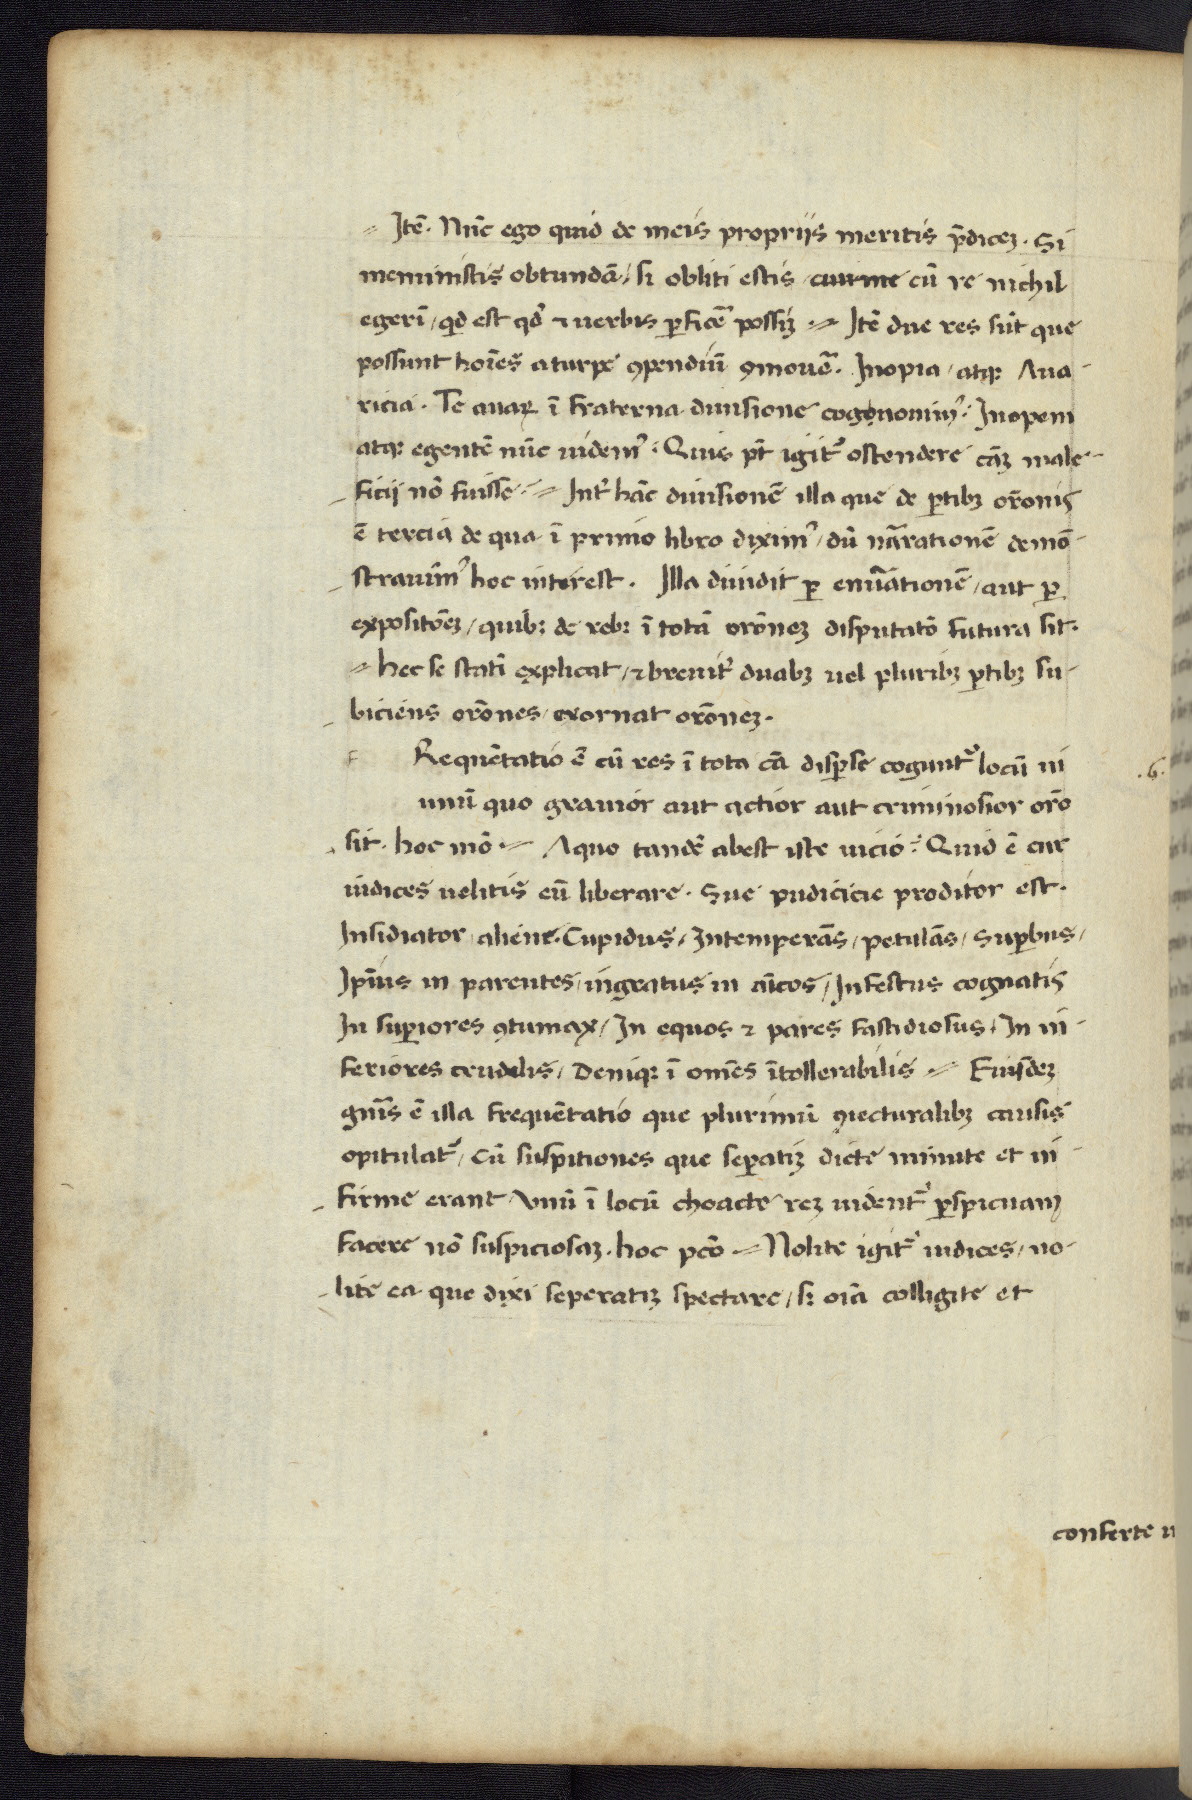 Itē. Nūc ego quid de meis propriis meritis p̄diceꝫ. Si
meministis obtundā, sꝫ obliti estis cum me cū re nichil
egerī, qd est qd ī uerbis ꝑficē possiꝫ. Itē due res sūt que
possunt hoīes a turpe ꝯpendiū ꝯmouē. Inopia, atqꝫ Aua-
ricia. Te auaꝝ ī fraterna diuisione cognouimꝰ. Inopem
atqꝫ egentē nūc uidemꝰ. Quis pt̄ igit᷑ ostendere cāꝫ male-
ficij nō fuisse. Int᷑ hāc diuisionē illa que de ꝑtibꝫ orōnis
ē tercia de qua ī primo libro diximꝰ, dū nārationē demō-
strauimꝰ hoc interest. Illa diuidit ꝑ enūationē, aut ꝑ
expositōeꝫ, quibꝫ de rebꝫ ī totā orōneꝫ disputatō futura sit.
hec se statī explicat, ⁊ breuit᷑ duabꝫ uel pluribꝫ ꝑtibꝫ su-
biciens orōnes, exornat orōneꝫ.
f Requētatio ē cū res ī tota cā disꝑse cogunt᷑ locū in .6.
unū quo grauior aut actior aut criminosior orō
sit. hoc mō. A quo tandē abest iste uicio? Quid ē cur
iudices uelitis eū liberare. Sue pudicicie proditor est.
Insidiator aliene. Cupidus, Intemperās, petulās, Suꝑbus,
Ip̄ius in parentes, ingratus in aīcos, Infestus cognatis
In suꝑiores ꝯtumax, In equos ⁊ pares fastidiosus, In in-
feriores crudelis, Deniqꝫ ī omēs ītollerabilis. Eiusdeꝫ
gn̄is ē illa frequētatio que plurimū ꝯiecturalibꝫ causis
opitulat᷑, Cū suspitiones que seꝑatiꝫ dicte minute et in-
firme erant, unū ī locū choacte reꝫ uident᷑ ꝑspicuaꝫ
facere nō suspiciosaꝫ. hoc pcō. Nolite igit᷑ iudices, no-
lite ea que dixi seperatiꝫ spectare, sꝫ oīa colligite et
conferte